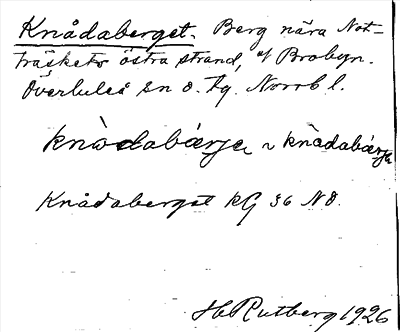 Knådaberget. Berg nära Not-
träskets östra strand, Brobyn.
Överluleå sn o. tg. Norrb l.
knòdabárja ~ knàdabárja
Knådaberget kG 36 NO.
H. Rutberg 1926